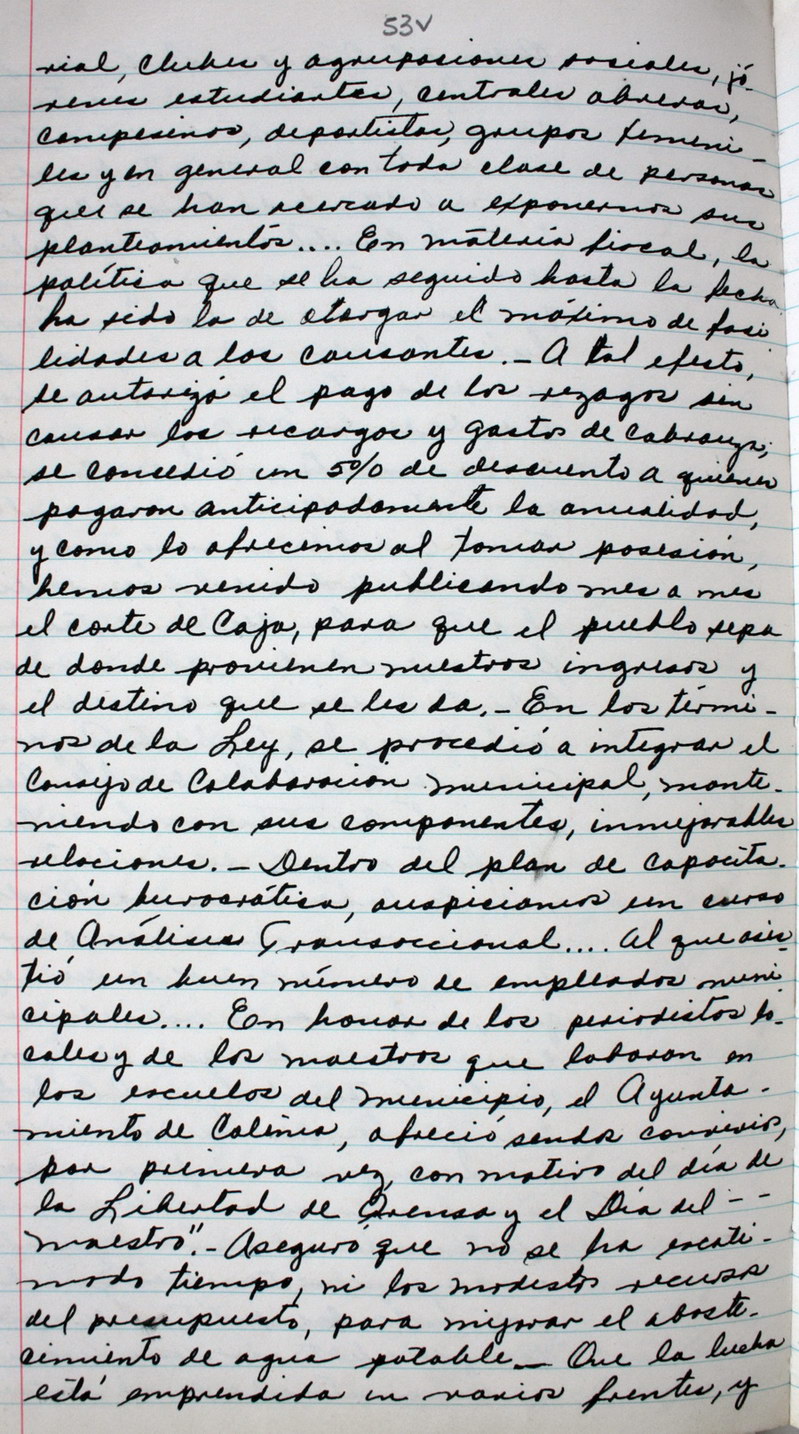 53v
rial, clubes y agrupasiones sosiales, jó-
venes estudiantes, centrales obreras,
campesinos, deportistas, grupos femeni-
les y en general con toda clase de personas
que se han acercado a exponernos sus
planteamientos.... En materia fiscal, la
política que se ha seguido hasta la fecha
ha sido la de otorgar el máximo de fasi
lidades a los causantes.- A tal efecto,
se autorizó el pago de los rezagos sin
causar los recargos y gastos de cobranza;
se concedió un 5% de descuento a quienes
pagaron anticipadamente la anualidad,
y como lo ofrecimos al tomar posesión,
hemos venido publicando mes a mes
el corte de Caja, para que el pueblo sepa
de donde provienen nuestros ingresos y
el destino que se les da.- En los térmi-
nos de la Ley, se procedió a integrar el
Consejo de Colaboracion municipal, mante-
niendo con sus componentes, inmejorables
relaciones.- Dentro del plan de capacita-
ción burocrática, auspiciamos un curso
de Análisis Transaccional.... al que asis-
tió un buen número de empleados muni
cipales.... En honor de los periodistas lo-
cales y de los maestros que laboran en
los escuelas del municipio, el Ayunta-
miento de Colima, ofreció sendos convivios,
por primera vez, con motivo del día de
la Libertad de Prensa y el Día del - -
maestro".- Aseguró que no se ha escati-
mado tiempo, ni los modestos recursos
del presupuesto, para mejorar el abaste-
cimiento de agua potable.- Que la lucha
está emprendida en varios frentes, y